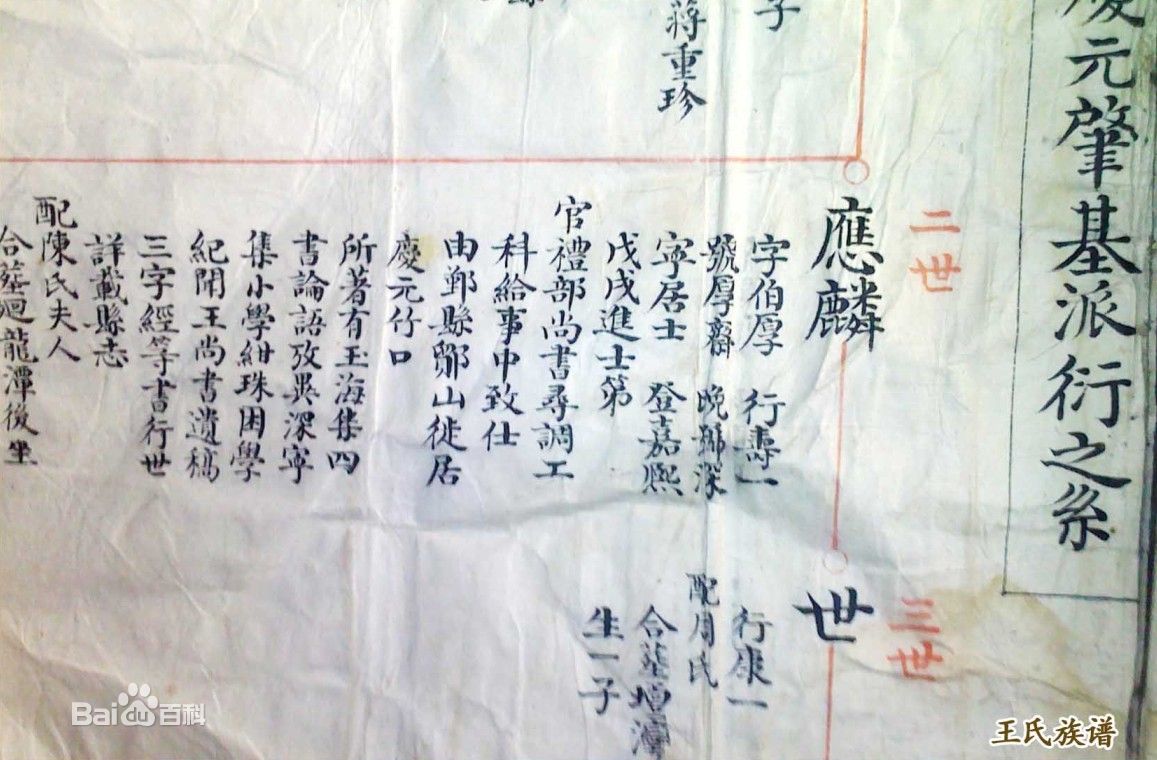 慶元肇基派衍之糸
子
蔣重珍
二世
應麟
字伯厚 行壽一
號厚齋 晚號深
寧居士 登嘉熙
戊戌進士第
官禮部尚書尋調工
科給事中致仕
由鄞縣鄮山徙居
慶元竹口
所著有玉海集四
書論語攷異深寧
集小學紺珠困學
紀聞王尚書遺稿
三字經等書行世
詳載縣志
配陳氏夫人
合墓迴龍潭後坐
三世
世
行康一
配周氏
合墓塢潭
生一子
Baidu百科
王氏族谱